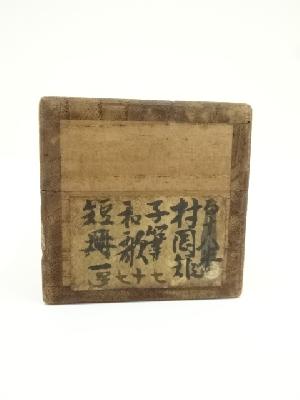 村岡矩
子筆
和歌
短冊一
七十七